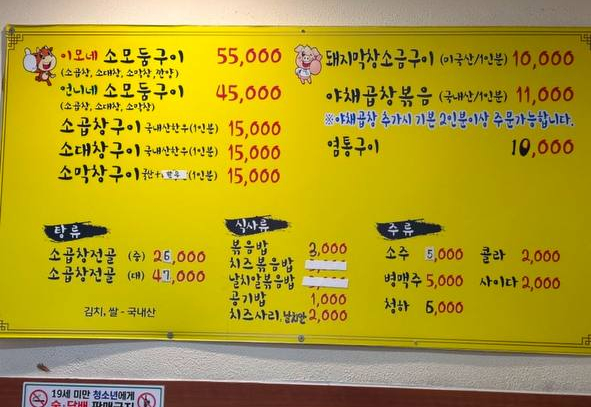 이모네 소모둠구이 55,000
(소곱창, 소대창, 소막창, 깐양)
언니네 소모둠구이 45,000
(소곱창, 소대창, 소막창)
소곱창구이 국내산한우(1인분) 15,000
소대창구이 국내산한우(1인분) 15,000
소막창구이 (1인분) 15,000
돼지막창소금구이 (미국산/1인분) 10,000
야채곱창볶음 (국내산/1인분) 11,000
※야채곱창 추가시 기본 2인분이상 주문가능합니다.
염통구이 10,000
탕류
소곱창전골 (중) 26,000
소곱창전골 (대) 47,000
김치, 쌀 - 국내산
식사류
볶음밥 3,000
치즈볶음밥
날치알볶음밥
공기밥 1,000
치즈사리, 날치알 2,000
주류
소주 5,000 콜라 2,000
병맥주 5,000 사이다 2,000
청하 6,000
19세 미만 청소년에게
술·담배 판매금지